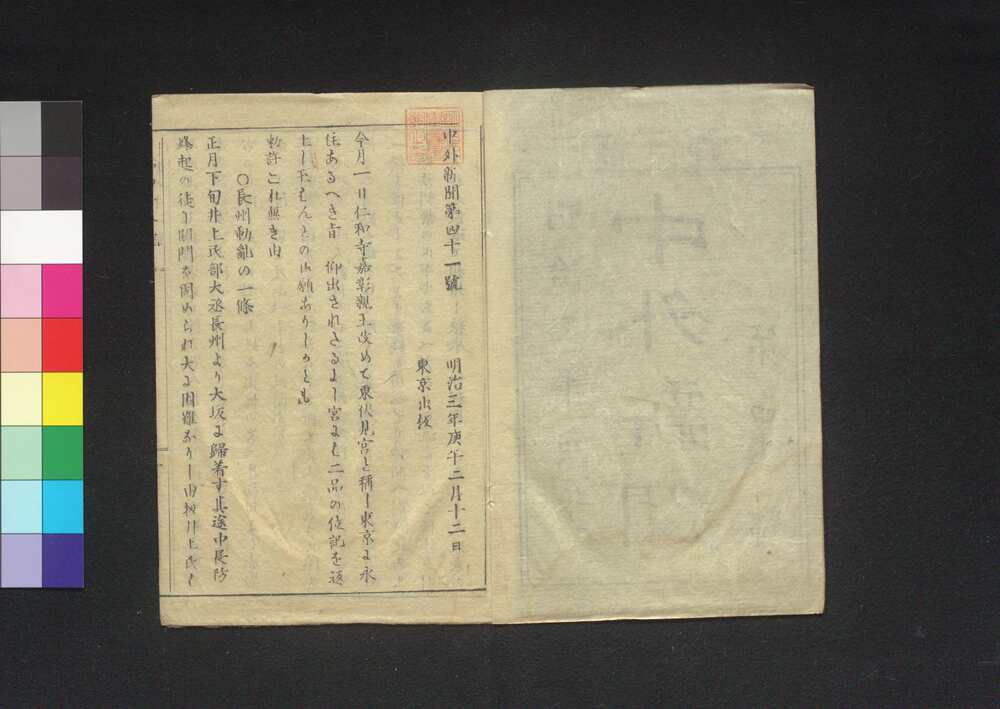 中外新聞第四十一號　明治三年庚午二月十二日
東京出板
今月一日仁和寺嘉彰親王改めて東伏見宮と稱し東京よ永
住あるへき旨　仰出されたるよし宮よも二品の位記を返
上したきんとの御願ありしかとも
勅許これ無き由
〇長州動亂の一條
正月下旬井上民部大丞長州より大坂よ歸着す其途中長防
蜂起の徒より關門を固められ大よ困難なりし由扨井上氏も